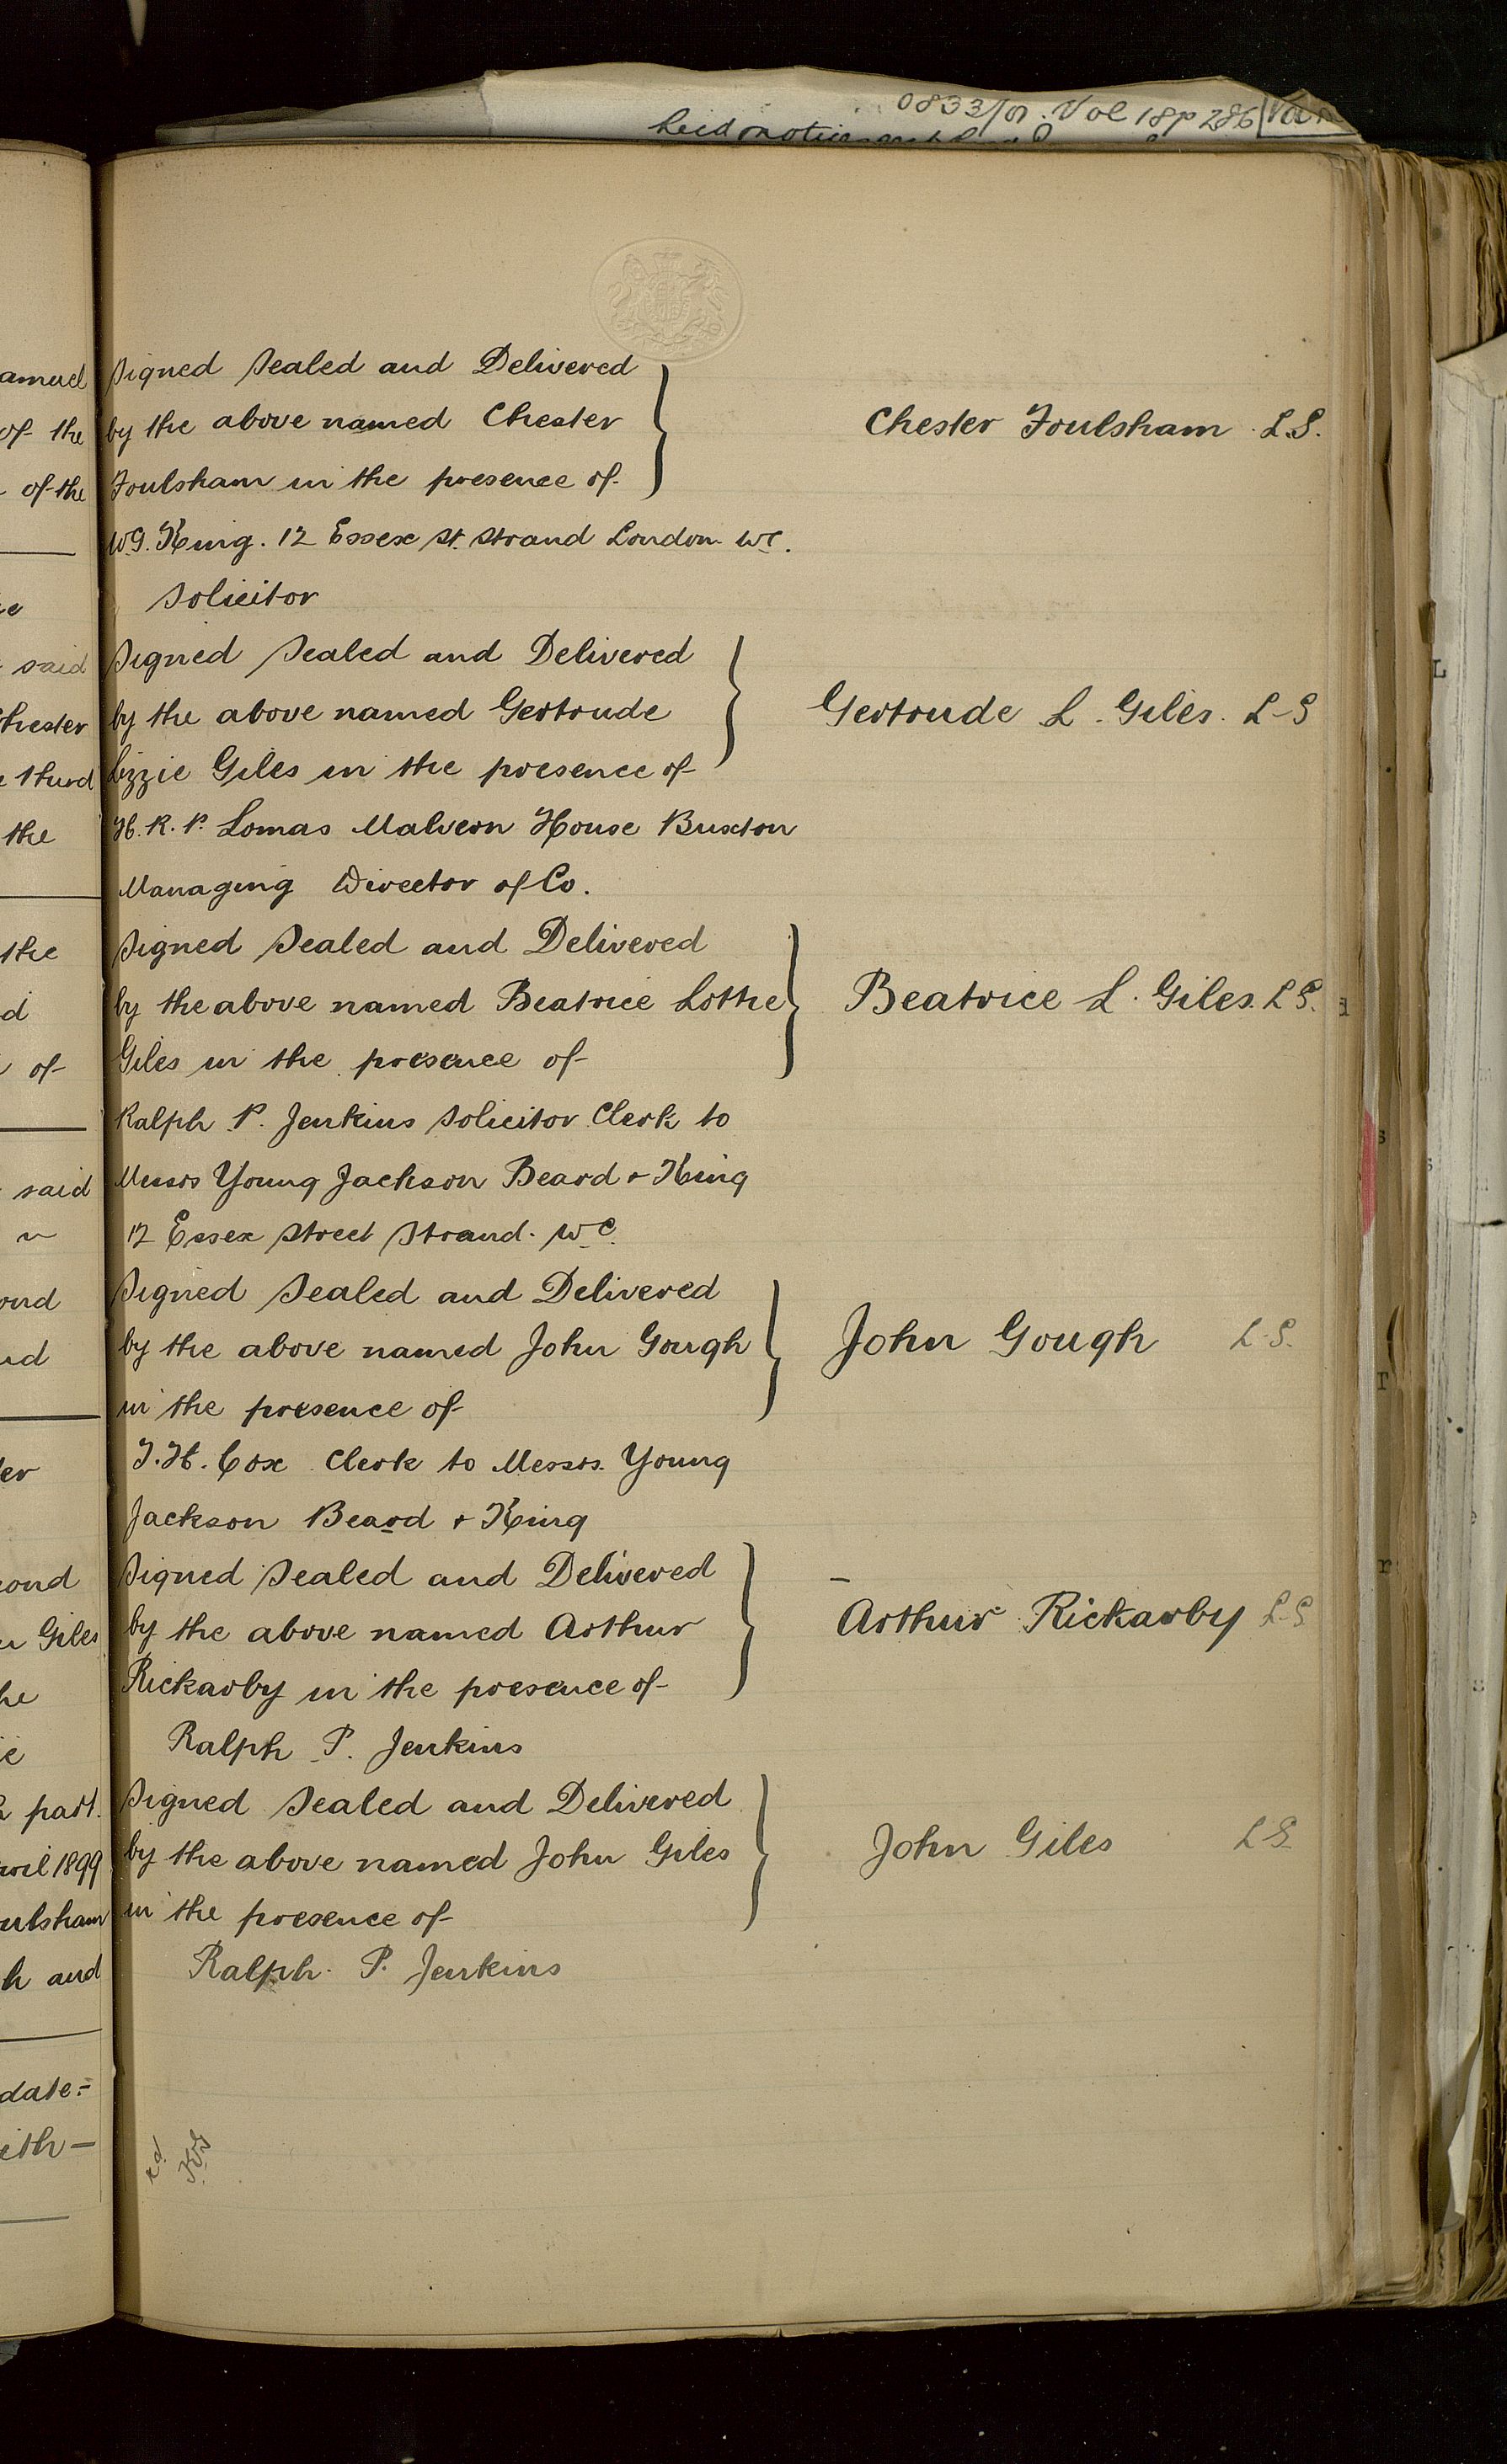 0833/01. Vol 18p 286
Signed Sealed and Delivered
by the above named Chester
Foulsham in the presence of
Chester Foulsham L.S.
W.G. King. 12 Essex St. Strand London W.C.
Solicitor
Signed Sealed and Delivered
by the above named Gertrude
Lizzie Giles in the presence of
Gertrude L. Giles. L-S
H. R. P. Lomas Malvern House Buxton
Managing Director of Co.
Signed Sealed and Delivered
by the above named Beatrice Lottie
Giles in the presence of
Beatrice L. Giles. L S.
Ralph P. Jenkins Solicitor Clerk to
Messrs Young Jackson Beard & King
12 Essex Street Strand. W.C.
Signed Sealed and Delivered
by the above named John Gough
in the presence of
John Gough L.S.
T. H. Cox Clerk to Messrs. Young
Jackson Beard & King
Signed Sealed and Delivered
by the above named Arthur
Rickarby in the presence of
Arthur Rickarby L-S
Ralph P. Jenkins
Signed Sealed and Delivered
by the above named John Giles
in the presence of
John Giles L S.
Ralph. P. Jenkins
amuel
of the
of the
said
hester
third
the
the
of
said
ond
er
cond
Giles
part.
1899
ulsham
h and
date:-
ith-